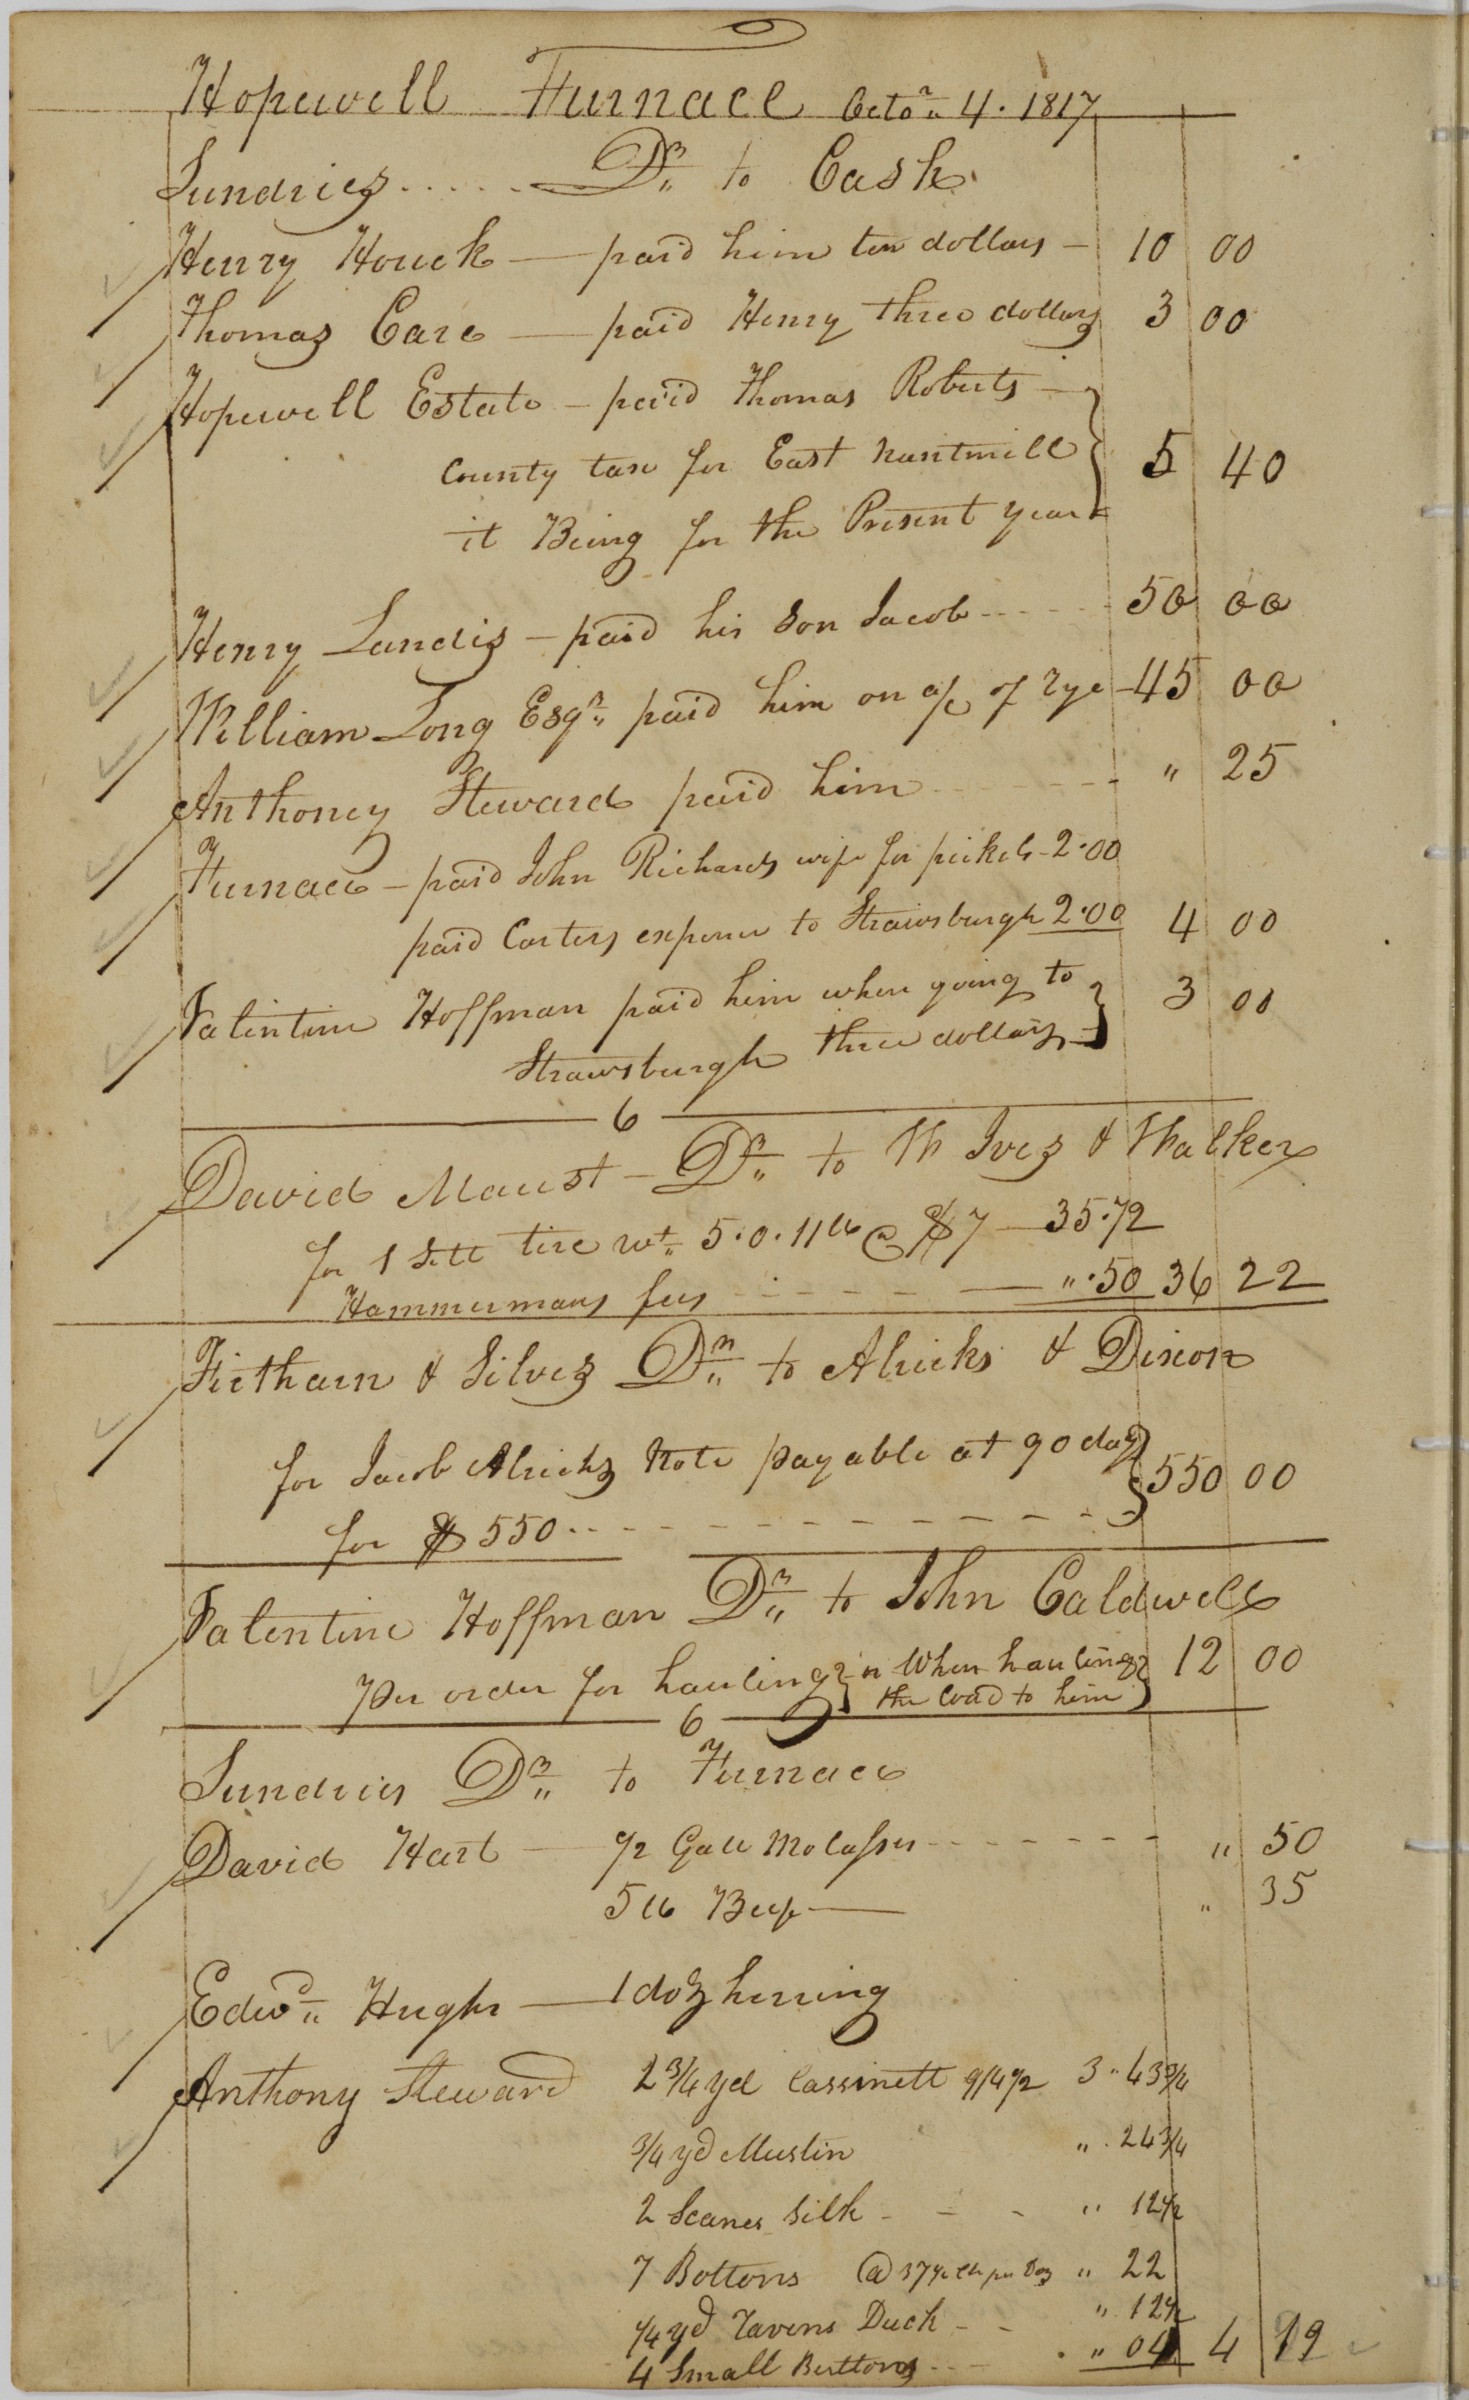 Hopewell Furnace Octor 4. 1817
Sundries ..... Dr to Cash
Henry Houck — paid him ten dollars — 10 00
Thomas Care — paid Henry three dollars 3 00
Hopewell Estate — paid Thomas Roberts —
County tax for East Nantmill 5 40
it Being for the Present year
Henry Landis — paid his Son Jacob ----- 50 00
William Long Esqr paid him on a/c of rye — 45 00
Anthoney Steward paid him ------- " 25
Furnace — paid John Richards wife for 2.00
paid Carters expence to Strawsburgh 2.00 4 00
Valentine Hoffman paid him when going to 3 00
Strawsburgh three dollars
6
David Maust — Dr to Ives & Walker
for 1 Sett tire wt 5.0.11 lb @ $7 — 35.72
Hammermans fees ------ — ".50 36 22
Firtharn & Silvez Dr to Alricks & Dixon
for Jacob Alricks Note payable at 90 days 550 00
for $550 -----------
Valentine Hoffman Dr to John Caldwell
Per order for hauling When hauling 12 00
the Coad to him
6
Sundries Dr to Furnace
David Hart — 1/2 Gall Molasses ------- " 50
5 lb Beef — " 35
Edwd Hughs — 1 doz herring
Anthony Steward 2 3/4 yd Cassinett 9/4 1/2 3" 43 3/4
3/4 yd Muslin " . 24 3/4
2 Scanes Silk - - - " 12 1/2
7 Bottons @ 37 1/2 Cts per Doz " 22
1/4 yd Ravens Duck - - " 12 1/2
4 Small Buttons --- " 04 4 19